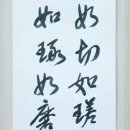 如切如瑳
如琢如磨